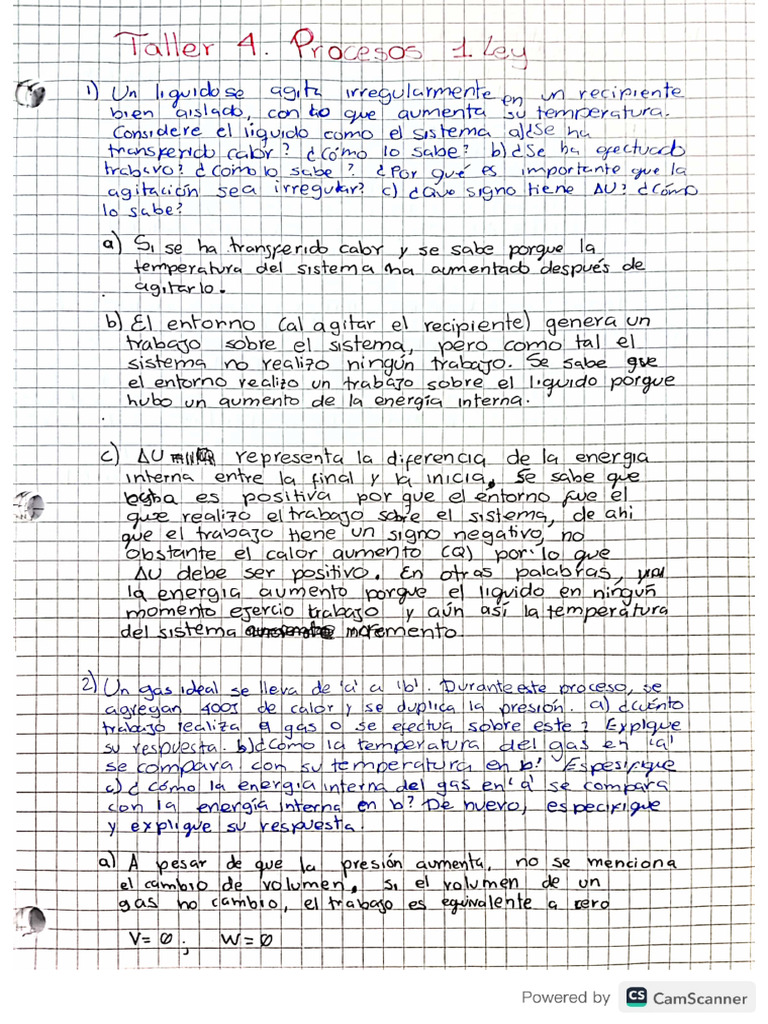 Taller 4. Procesos 1. Ley
1) Un liquido se agita irregularmente en un recipiente
bien aislado, con lo que aumenta su temperatura.
Considere el liquido como el sistema a)¿Se ha
transferido calor? ¿Cómo lo sabe? b)¿Se ha efectuado
trabajo? ¿Como lo sabe? ¿Por qué es importante que la
agitación sea irregular? c) ¿Que signo tiene ΔU? ¿Cómo
lo sabe?
a) Si se ha transferido calor y se sabe porque la
temperatura del sistema ha aumentado después de
agitarlo.
b) El entorno (al agitar el recipiente) genera un
trabajo sobre el sistema, pero como tal el
sistema no realizo ningún trabajo. Se sabe que
el entorno realizo un trabajo sobre el liquido porque
hubo un aumento de la energía interna.
c) ΔU representa la diferencia de la energia
interna entre la final y la inicia, Se sabe que
es positiva por que el entorno fue el
que realizo el trabajo sobre el sistema, de ahi
que el trabajo tiene un signo negativo, no
obstante el calor aumento (Q) por lo que
ΔU debe ser positivo. En otras palabras,
la energia aumento porque el liquido en ningún
momento ejercio trabajo y aún así la temperatura
del sistema incremento
2) Un gas ideal se lleva de 'a' a 'b'. Durante este proceso, se
agregan 400J de calor y se duplica la presión. a) ¿cuénto
trabajo realiza el gas o se efectua sobre este? Explique
su respuesta. b)¿Como la temperatura del gas en 'a'
se compara con su temperatura en b? Espesifique
c) ¿cómo la energia interna del gas en 'a' se compara
con la energía interna en b? De nuevo, especifique
y explique su respuesta.
a) A pesar de que la presión aumenta, no se menciona
el cambio de volumen, si el volumen de un
gas no cambio, el trabajo es equivalente a cero
V= 0 ; W= 0
Powered by CS CamScanner